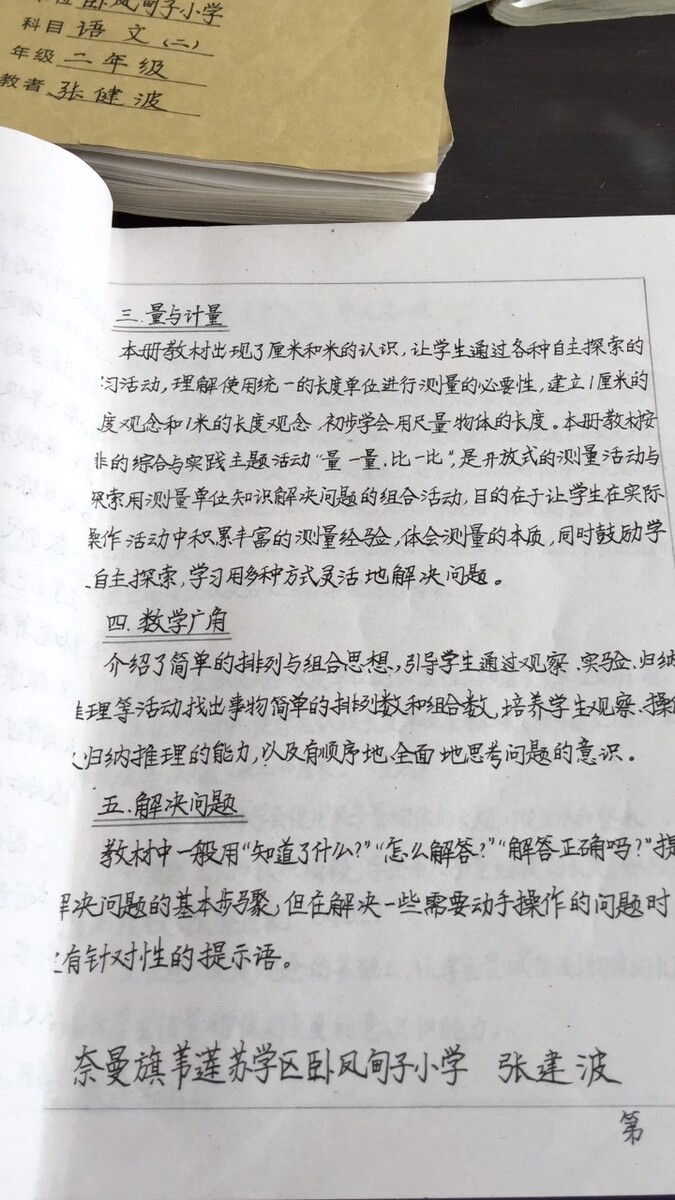 卧凤甸子小学
科目 语文(二)
年级 二年级
教者 张健波
三.量与计量
本册教材出现了厘米和米的认识，让学生通过各种自主探索的
习活动，理解使用统一的长度单位进行测量的必要性，建立1厘米的
度观念和1米的长度观念，初步学会用尺量物体的长度。本册教材按
排的综合与实践主题活动“量一量，比一比”，是开放式的测量活动与
探索用测量单位知识解决问题的组合活动，目的在于让学生在实际
操作活动中积累丰富的测量经验，体会测量的本质，同时鼓励学
自主探索，学习用多种方式灵活地解决问题。
四.数学广角
介绍了简单的排列与组合思想，引导学生通过观察、实验、归纳
推理等活动找出事物简单的排列数和组合数，培养学生观察、操作
归纳推理的能力，以及有顺序地、全面地思考问题的意识。
五.解决问题
教材中一般用“知道了什么?”“怎么解答?”“解答正确吗?”提
解决问题的基本步骤，但在解决一些需要动手操作的问题时
有针对性的提示语。
奈曼旗苇莲苏学区卧凤甸子小学 张建波
第